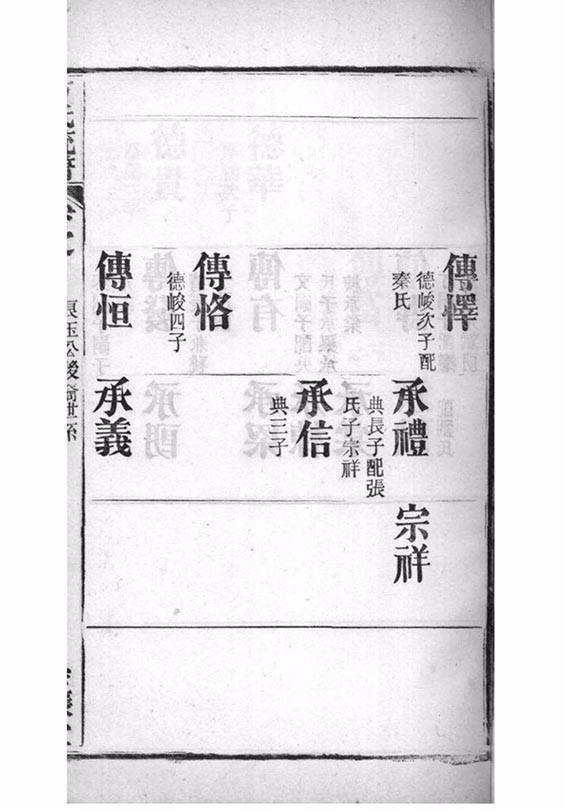 傳懌
德峻次子配
秦氏
承禮
典長子配張
氏子宗祥
宗祥
承信
典三子
傳恪
德峻四子
傳恒
承義